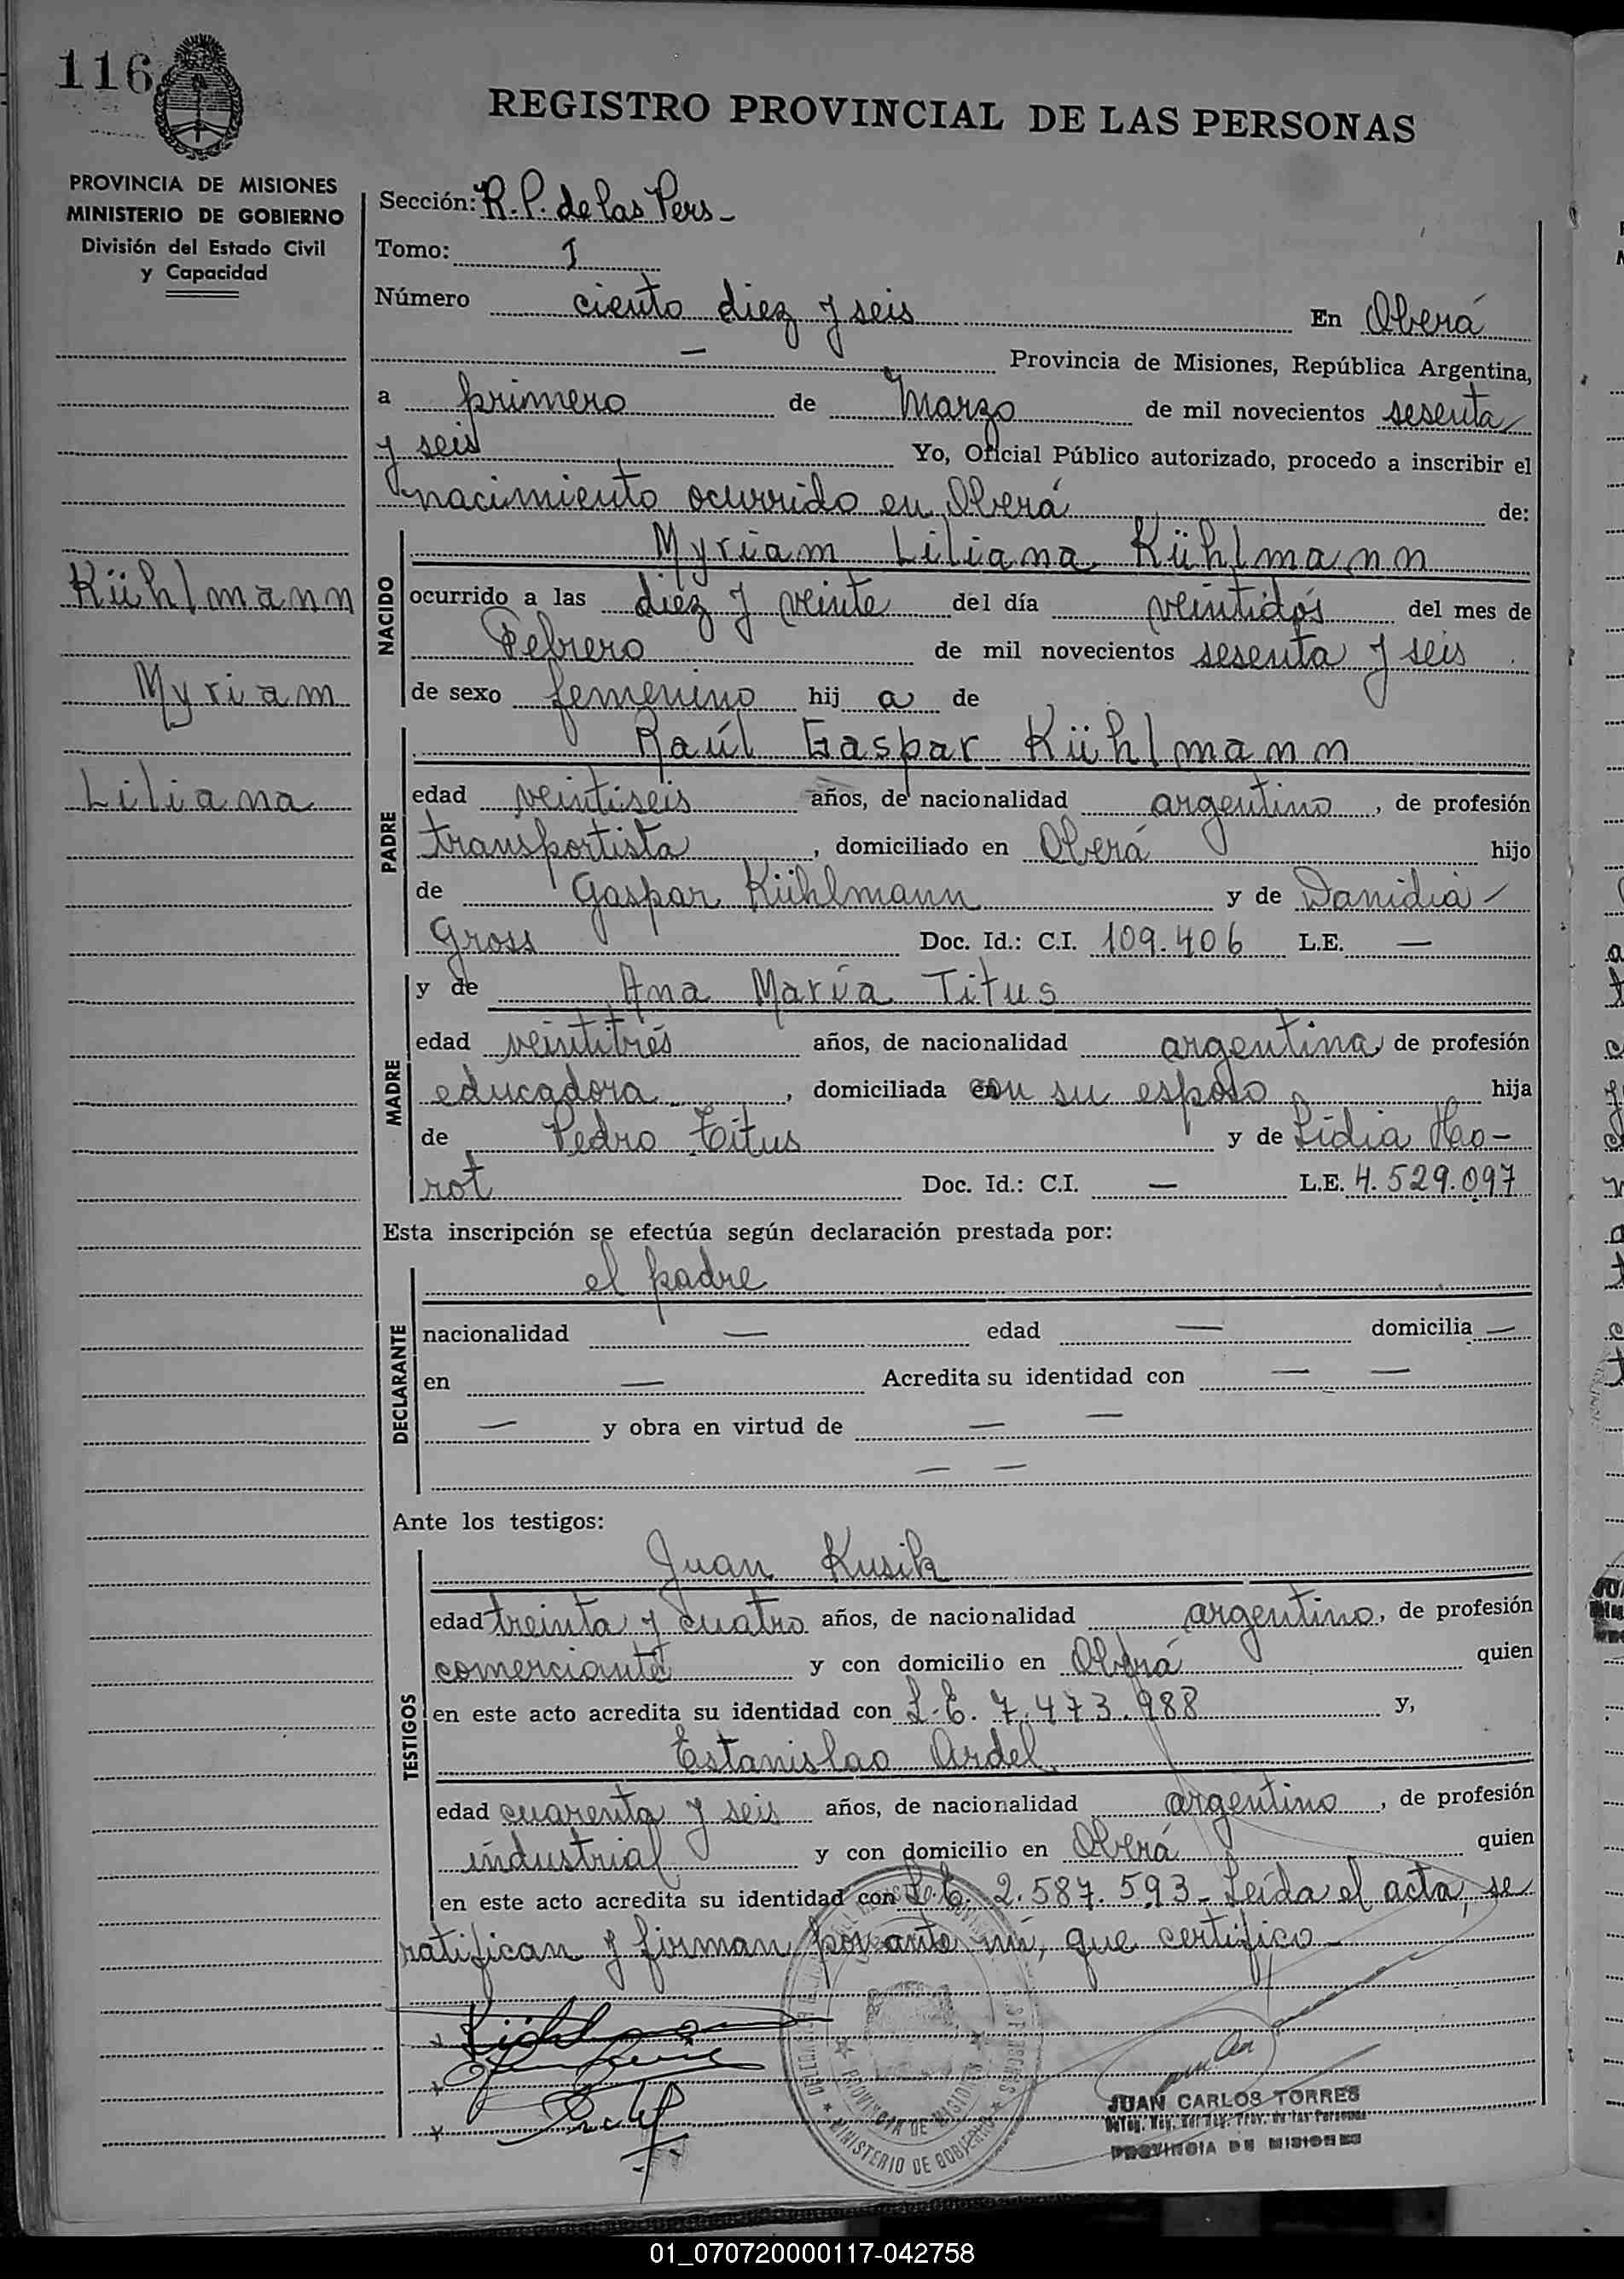 116
REGISTRO PROVINCIAL DE LAS PERSONAS
PROVINCIA DE MISIONES
MINISTERIO DE GOBIERNO
División del Estado Civil
y Capacidad
Kühlmann
Myriam
Liliana
Sección: R. P. de las Pers -
Tomo: I
Número ciento diez y seis En Oberá
— Provincia de Misiones, República Argentina,
a primero de Marzo de mil novecientos sesenta
y seis Yo, Oficial Público autorizado, procedo a inscribir el
nacimiento ocurrido en Oberá de:
NACIDO
Myriam Liliana Kühlmann
ocurrido a las diez y veinte del día veintidós del mes de
Febrero de mil novecientos sesenta y seis
de sexo femenino hij a de
PADRE
Raúl Gaspar Kühlmann
edad veintiseis años, de nacionalidad argentino, de profesión
transportista, domiciliado en Oberá hijo
de Gaspar Kühlmann y de Danidia
Gross Doc. Id.: C.I. 109.406 L.E. —
MADRE
y de Ana María Titus
edad veintitrés años, de nacionalidad argentina, de profesión
educadora, domiciliada con su esposo hija
de Pedro Titus y de Lidia Hao-
rot Doc. Id.: C.I. — L.E. 4.529.097
Esta inscripción se efectúa según declaración prestada por:
DECLARANTE
el padre
nacionalidad — edad — domicilia —
en — Acredita su identidad con — —
— y obra en virtud de — —
— —
Ante los testigos:
TESTIGOS
Juan Kusik
edad treinta y cuatro años, de nacionalidad argentino, de profesión
comerciante y con domicilio en Oberá quien
en este acto acredita su identidad con L.E. 7.473.988 y,
Estanislao Ardel
edad cuarenta y seis años, de nacionalidad argentino, de profesión
industrial y con domicilio en Oberá quien
en este acto acredita su identidad con L.E. 2.587.593 - Leída el acta, se
ratifican y firman por ante mí, que certifico -
PROVINCIA DE MISIONES
MINISTERIO DE GOBIERNO
JUAN CARLOS TORRES
PROVINCIA DE MISIONES
01_070720000117-042758